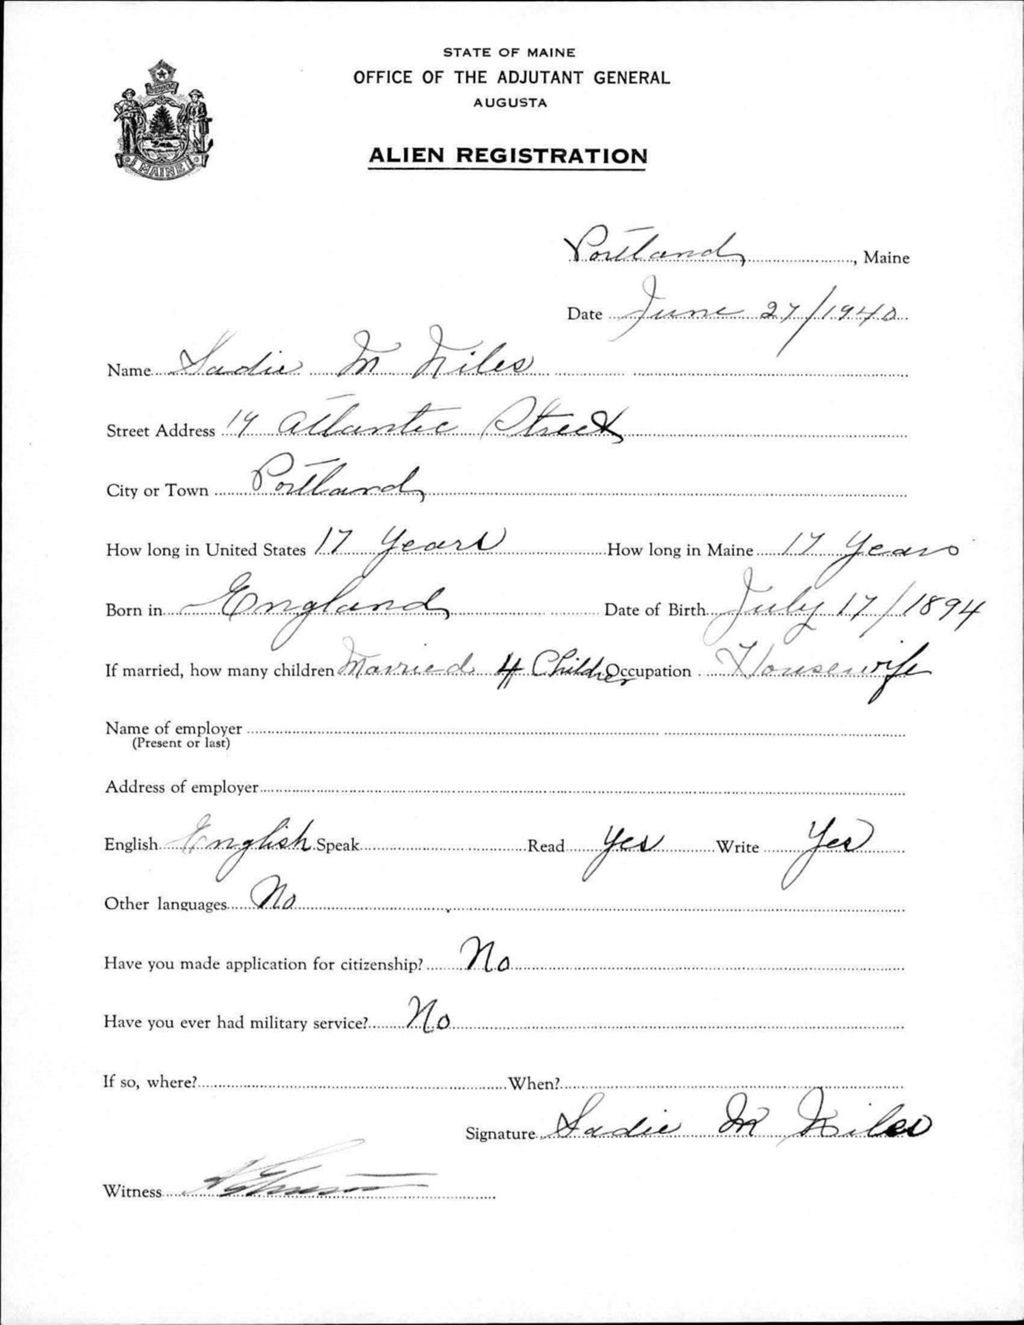 STATE OF MAINE
OFFICE OF THE ADJUTANT GENERAL
AUGUSTA
ALIEN REGISTRATION
MAINE
Portland, Maine
Date June 27/1940
Name Sadie M Niles
Street Address 14 Atlantic Street
City or Town Portland
How long in United States 17 Years How long in Maine 17 Years
Born in England Date of Birth July 17/1894
If married, how many children Married 4 Children Occupation Housewife
Name of employer
(Present or last)
Address of employer
English English Speak Read Yes Write Yes
Other languages No
Have you made application for citizenship? No
Have you ever had military service? No
If so, where? When?
Signature Sadie M Niles
Witness